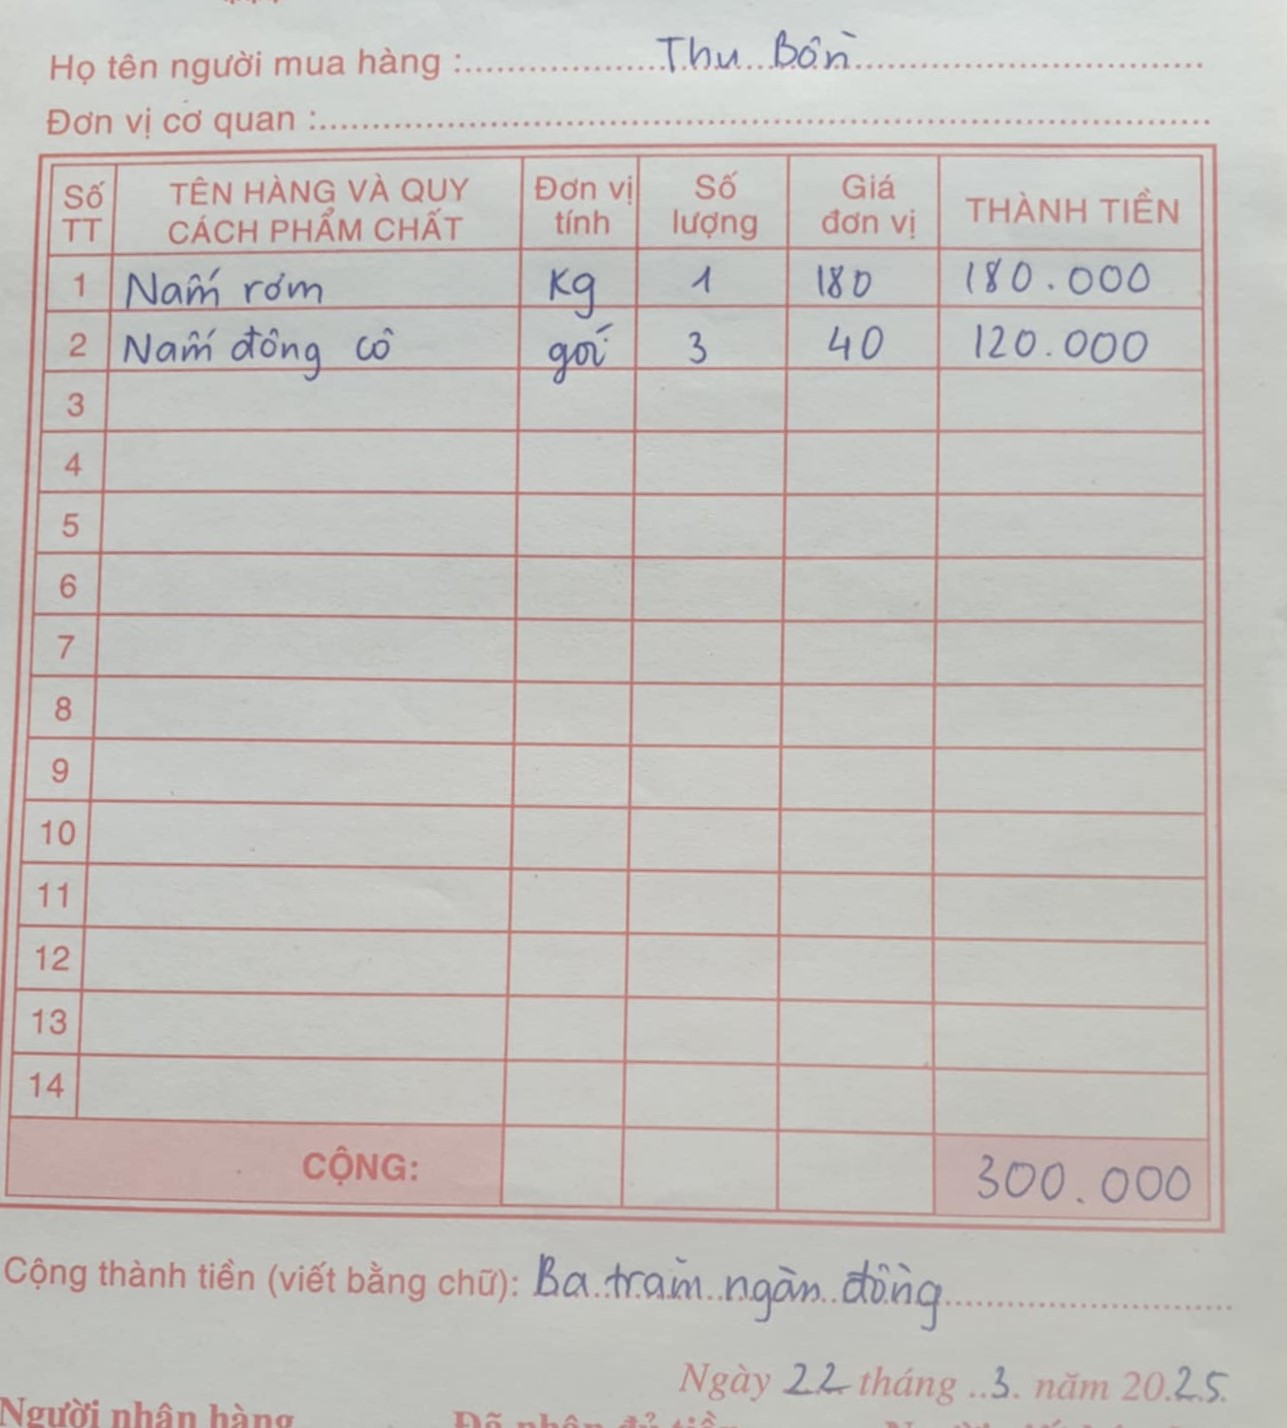 Họ tên người mua hàng : Thu Bồn
Đơn vị cơ quan :
Số TT TÊN HÀNG VÀ QUY CÁCH PHẨM CHẤT Đơn vị tính Số lượng Giá đơn vị THÀNH TIỀN
1 Nấm rơm Kg 1 180 180.000
2 Nấm đông cô gói 3 40 120.000
3
4
5
6
7
8
9
10
11
12
13
14
CỘNG: 300.000
Cộng thành tiền (viết bằng chữ): Ba trăm ngàn đồng
Ngày 22 tháng 3 năm 2025
Người nhận hàng Đã nhận đủ tiền